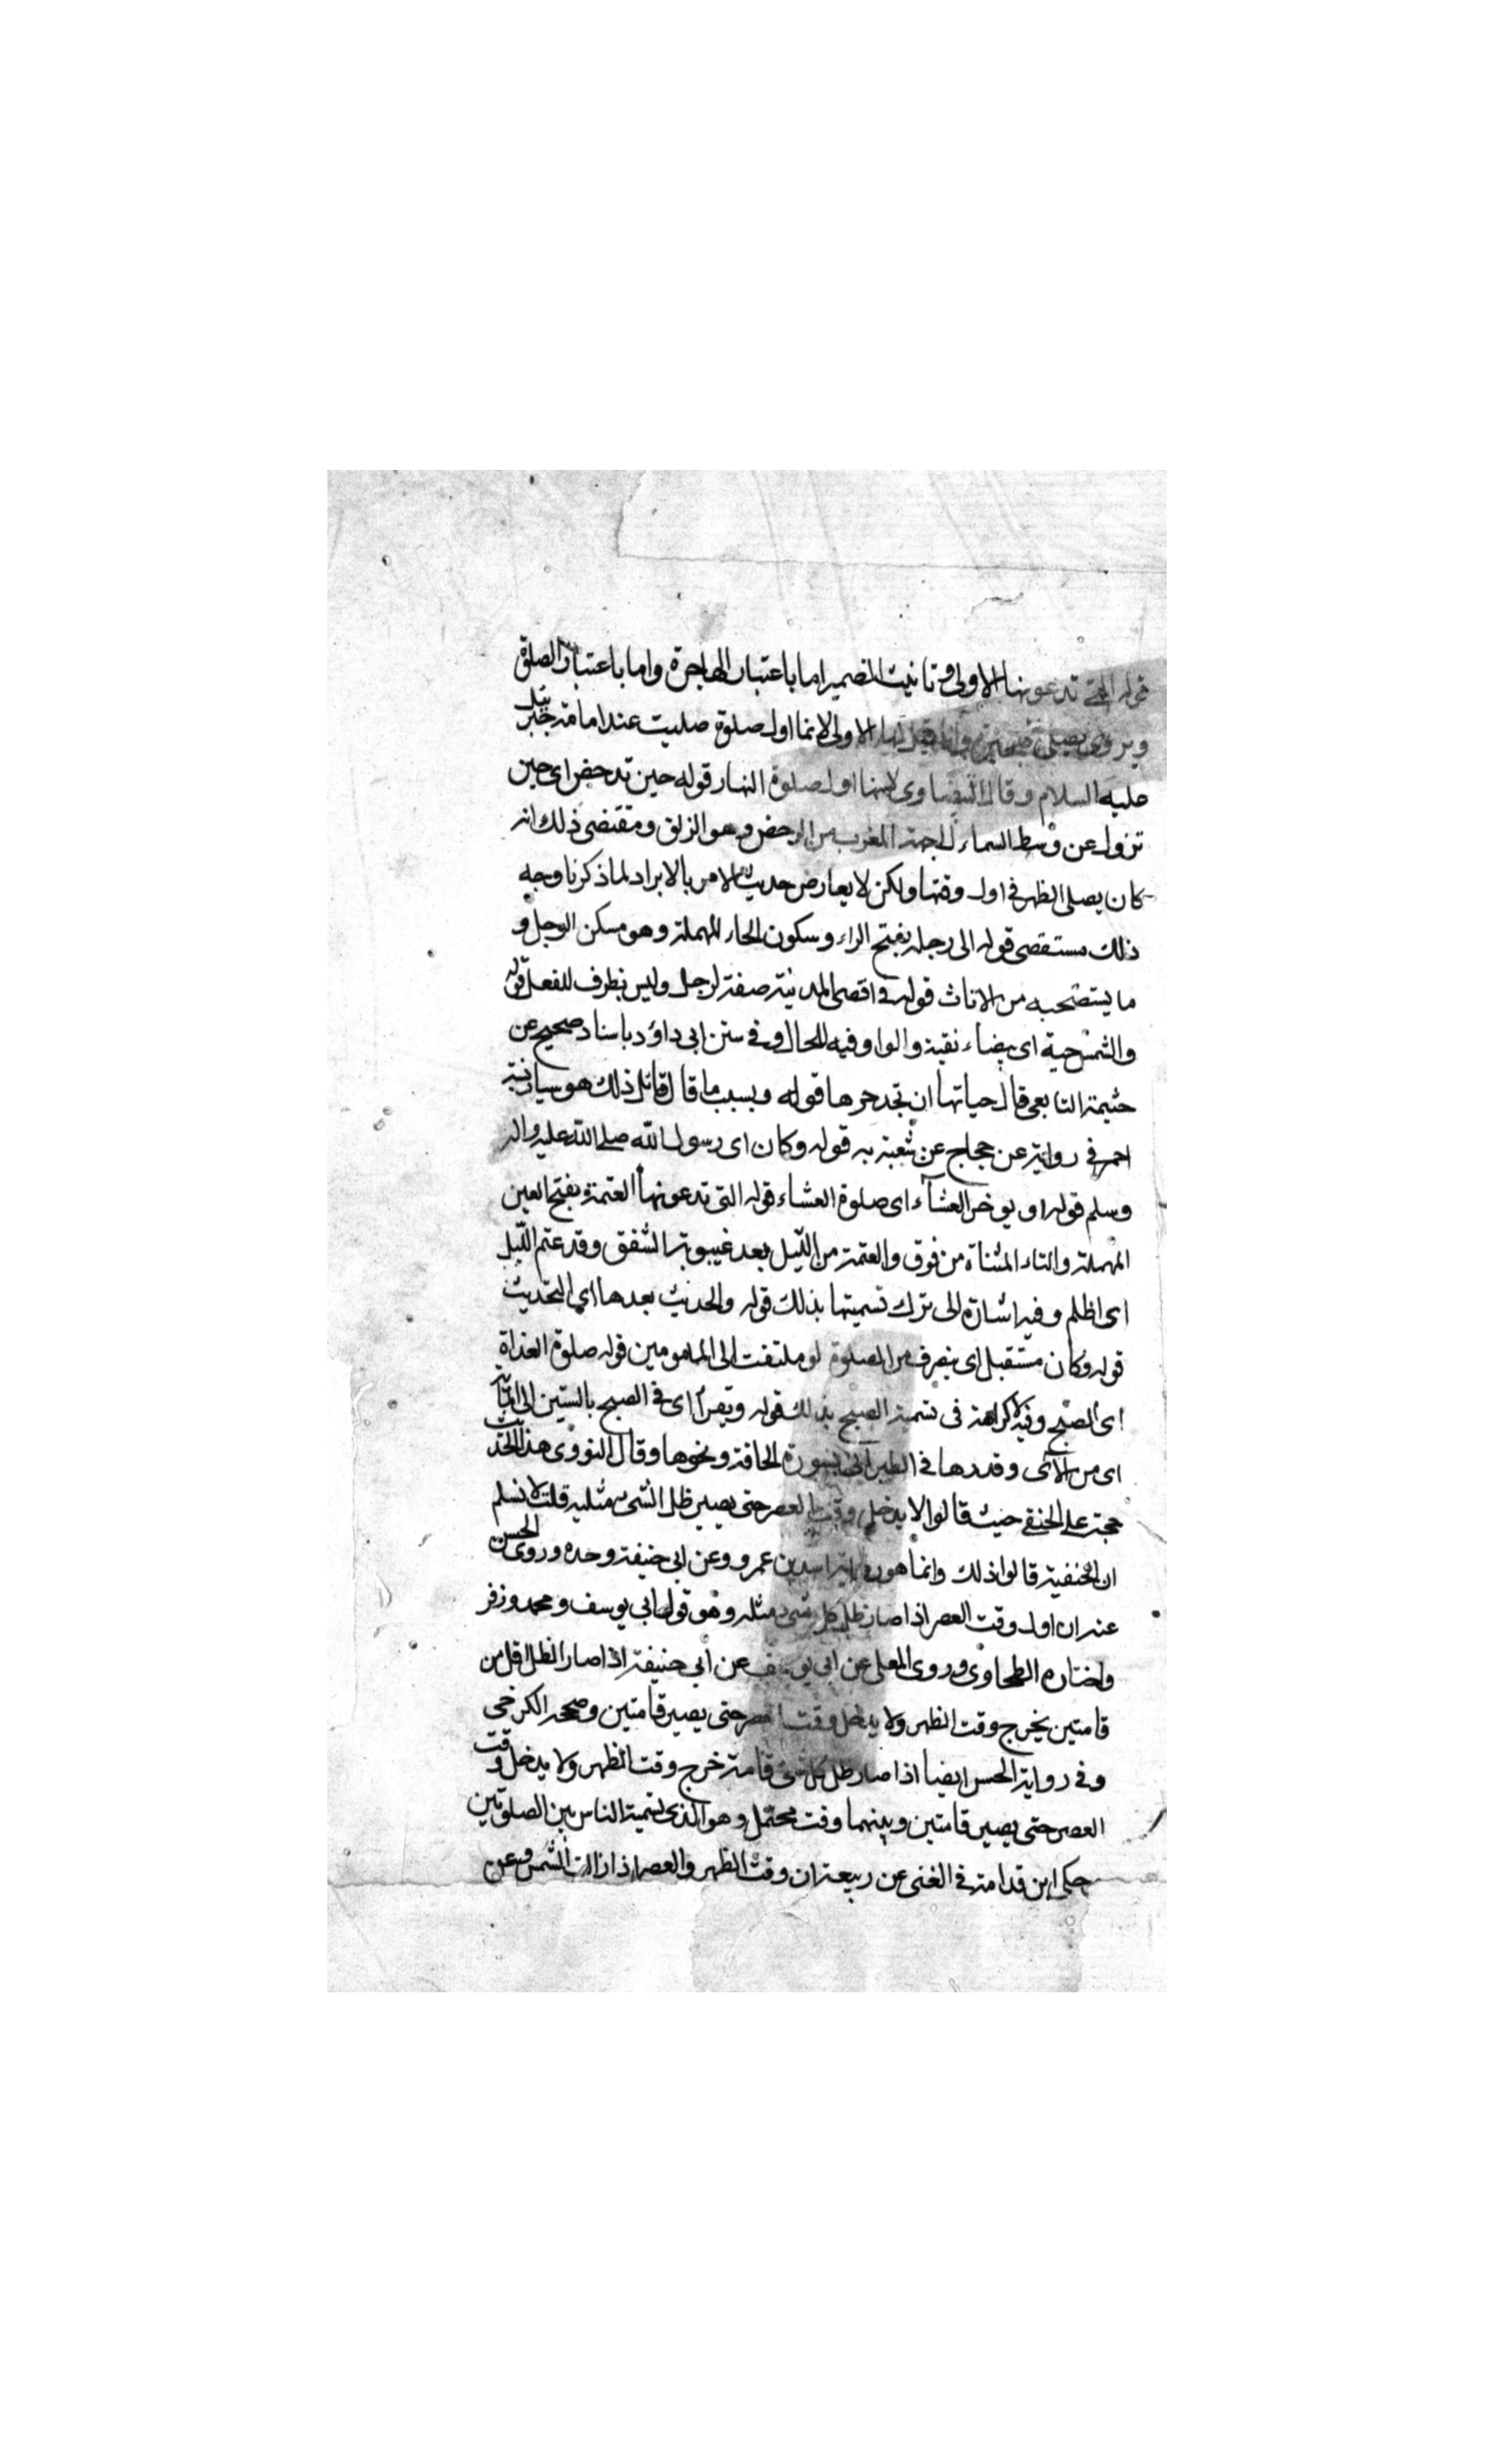 قوله التي تدعونها الاولى وتانيث الضمير اما باعتبار الهاجرة واما باعتبار الصلوة
ويروى يصلي الهجير وانما قيل لها الاولى لانها اول صلوة صليت عند امامة جبرئيل
عليه السلام وقال البيضاوى لانها اول صلوة النهار قوله حين تدحض اى حين
تزول عن وسط السماء لجهة المغرب من الدحض وهو الزلق ومقتضى ذلك انه
كان يصلى الظهر فى اول وقتها ولكن لا يعارض حديث الامر بالابراد لما ذكرنا وجه
ذلك مستقصى قوله الى رحله بفتح الراء وسكون الحاء المهملة وهو مسكن الرجل و
ما يستصحبه من الاثاث قوله فى اقصى المدينة صفة لرحل وليس بظرف للفعل قوله
والشمس حية اى بيضاء نقية والواو فيه للحال وفى سنن ابى داؤد باسناد صحيح عن
خثيمة التابعى قال حياتها ان تجد حرها قوله ونسيت ما قال قائل ذلك هو سيار بينه
احمد فى رواية عن حجاج عن شعبة به قوله وكان اى رسول الله صلى الله عليه واله
وسلم قوله او يوخر العشاء اى صلوة العشاء قوله التى تدعونها العتمة بفتح العين
المهملة والتاء المثناة من فوق والعتمة من الليل بعد غيبوبة الشفق وقد عتم الليل
اى اظلم وفيه اشارة الى ترك تسميتها بذلك قوله والحديث بعدها اى التحديث
قوله وكان مستقبل اى ينصرف من الصلوة او ملتفت الى المامومين قوله صلوة الغداة
اى الصبح وفيه لا كراهة فى تسمية الصبح بذلك قوله ويقرأ اى فى الصبح بالستين الى المائة
اى من الآى وقدرها فى الطبرانى بسورة الحاقة ونحوها وقال النووى هذا الحديث
حجة على الحنفى حيث قالوا لا يدخل وقت العصر حتى يصير ظل الشئ مثليه قلت لا نسلم
ان الحنفية قالوا ذلك وانما هو رواية اسد بن عمرو وعن ابى حنيفة وحده وروى الحسن
عنه ان اول وقت العصر اذا صار ظل كل شئ مثله وهو قول ابى يوسف ومحمد وزفر
واختاره الطحاوى وروى المعلى عن ابى يوسف عن أبي حنيفة اذا صار الظل اقل من
قامتين يخرج وقت الظهر ولا يدخل وقت العصر حتى يصير قامتين وصححه الكرخى
وفى رواية الحسن ايضا اذا صار ظل كل شئ قامة خرج وقت الظهر ولا يدخل وقت
العصر حتى يصير قامتين وبينهما وقت محتمل وهو الذى تسميه الناس بين الصلوتين
حكى ابن قدامة فى الغنى عن ربيعة ان وقت الظهر والعصر اذا زالت الشمس وعن